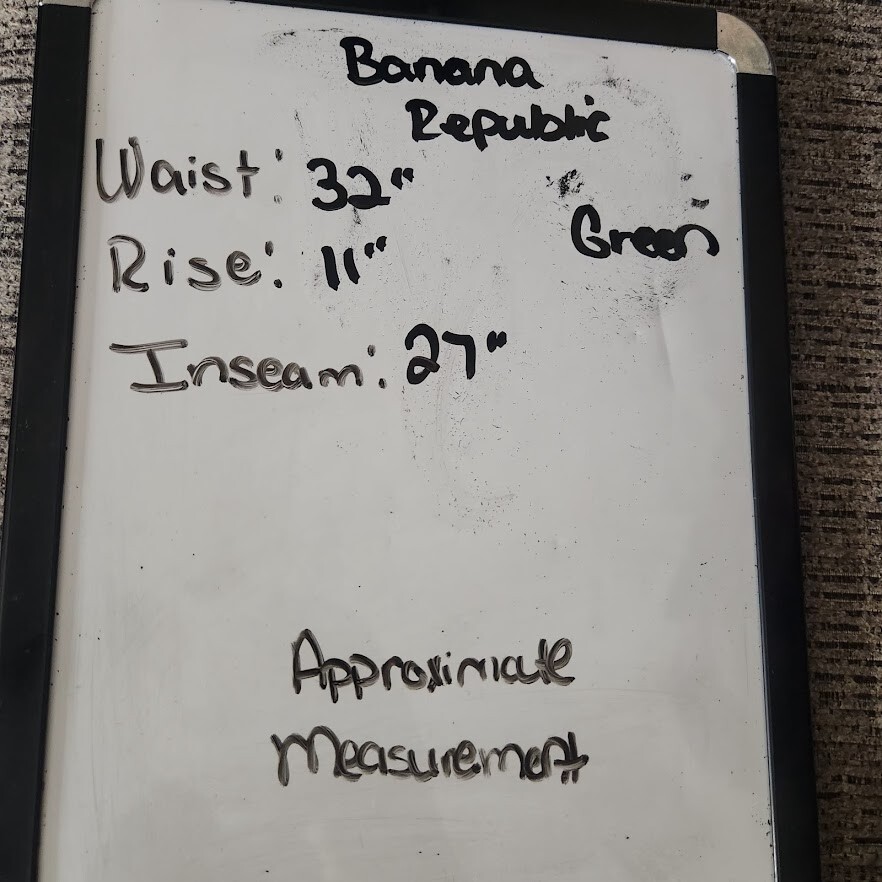 Banana
Republic
Waist: 32"
Green
Rise: 11"
Inseam: 27"
Approximate
Measurement